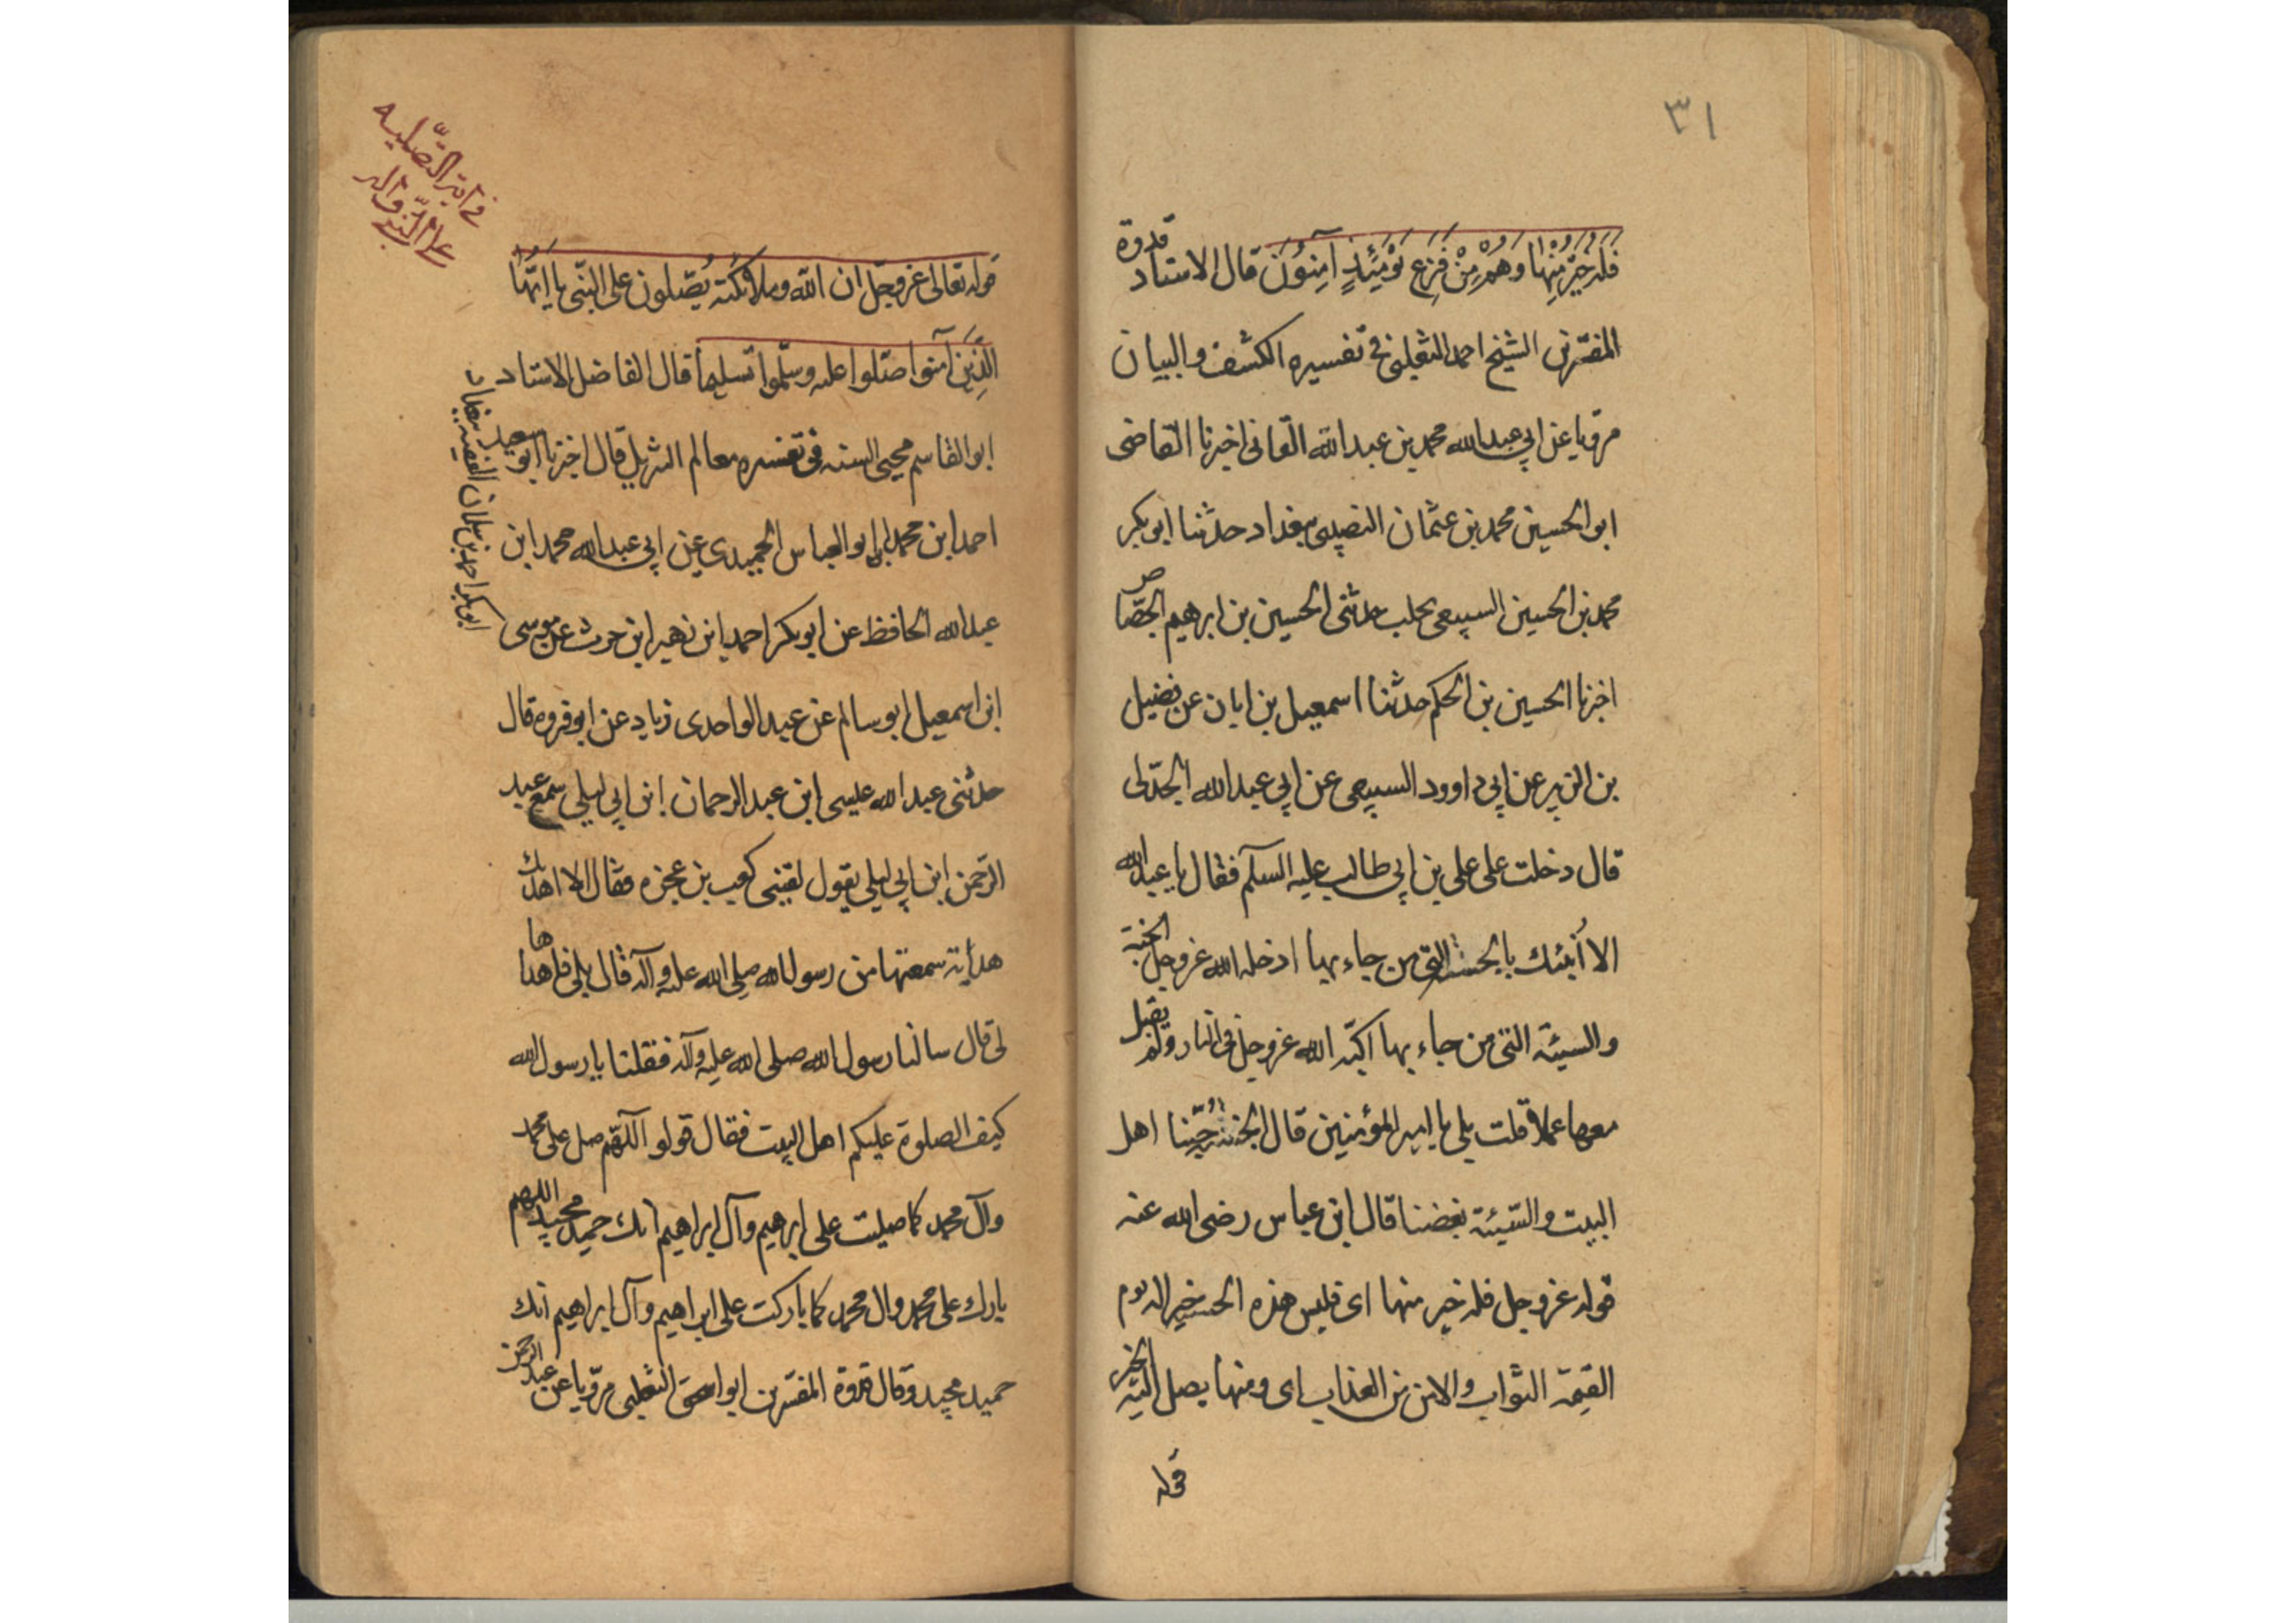 ٣١
فله خَيْرٌ مِنْها وَهُمْ مِنْ فَزِعٍ يَوْمَئِذٍ آمِنُوُنَ قال الاستاد قدوة
المفسّرين الشيخ احمد الثعلبى فى تفسيره الكشف والبيان
مرويا عن ابي عبد الله محمد بن عبد الله القاىٔنى اخبرنا القاضى
ابو الحسين محمد بن عثمان النصيبى ببغداد حدثنا ابوبكر
محمد بن الحسين السبيعى بحلب حدثنى الحسين بن ابرهيم الجصّاص
اخبرنا الحسين بن الحكم حدثنا اسمعيل بن ابان عن فضيل
بن الزبير عن ابي داوود السبيعى عن ابي عبد الله الجدّلى
قال دخلت على على بن ابي طالب عليه السلم فقال يا عبد الله
الا اُنبئك بالحسنة التى من جاء بها ادخله الله عزوجل الجنة
والسيئة التى من جاء بها اكبّه الله عزوجل فى النار ولم يقبل
معها عملا قلت بلى يا امير المؤمنين قال الحسنة حُبّنا اهل
البيت والسّيئة بغضنا قال ابن عباس رضى الله عنه
قوله عزوجل فله خير منها اى فليس هذه الحسنة خير اله يوم
القيمة الثواب والامن من العذاب اى ومنها يصل اليه الخير
قوله
فى اية التّصليه
على النّبى واله
قوله تعالى عزوجلّ ان الله وملائكته يُصّلون على النّبى يا ايّهَا
الَّذِيَن آمنوا صّلوا عليه وسلّموا تسليما قال الفاضل الاستاد
ابو القاسم محيى السنه فى تفسيره معالم التنزيل قال اخبرنا ابو سعيد
ابوبكر احمد بن
احمد ابن محمد ابن ابو العباس الحميدى عن ابي عبد الله محمد ابن
عبد الله الحافظ عن ابوبكر احمد ابن زهير ابن حرب عن موسى
ابن اسمعيل ابو سالم عن عبد الواحدى زياد عن ابو فروه قال
حدثنى عبد الله عليسى ابن عبد الرحمان ابن ابي ليلى سمع عبد
الرّحمن ابن ابي ليلى يقول لقينى كعب بن عجزه فقال الا اهدك
هداية سمعتها من رسول الله صلى الله عليه وآله قال بلى فاهداها
لى قال سالنا رسول الله صلى الله عليه وآله فقلنا يا رسول الله
كيف الصلوة عليكم اهل البيت فقال قولوا اللّهم صل على محمد
وآل محمد كما صليت على ابرهيم وآل ابراهيم انك حميد مجيد اللهم
بارك على محمد وال محمد كما باركت على ابراهيم وآل ابراهيم انك
حميد مجيد وقال قدوة المفسّرين ابو اسحق الثعلبى مرّويا عن عبد الرحمن